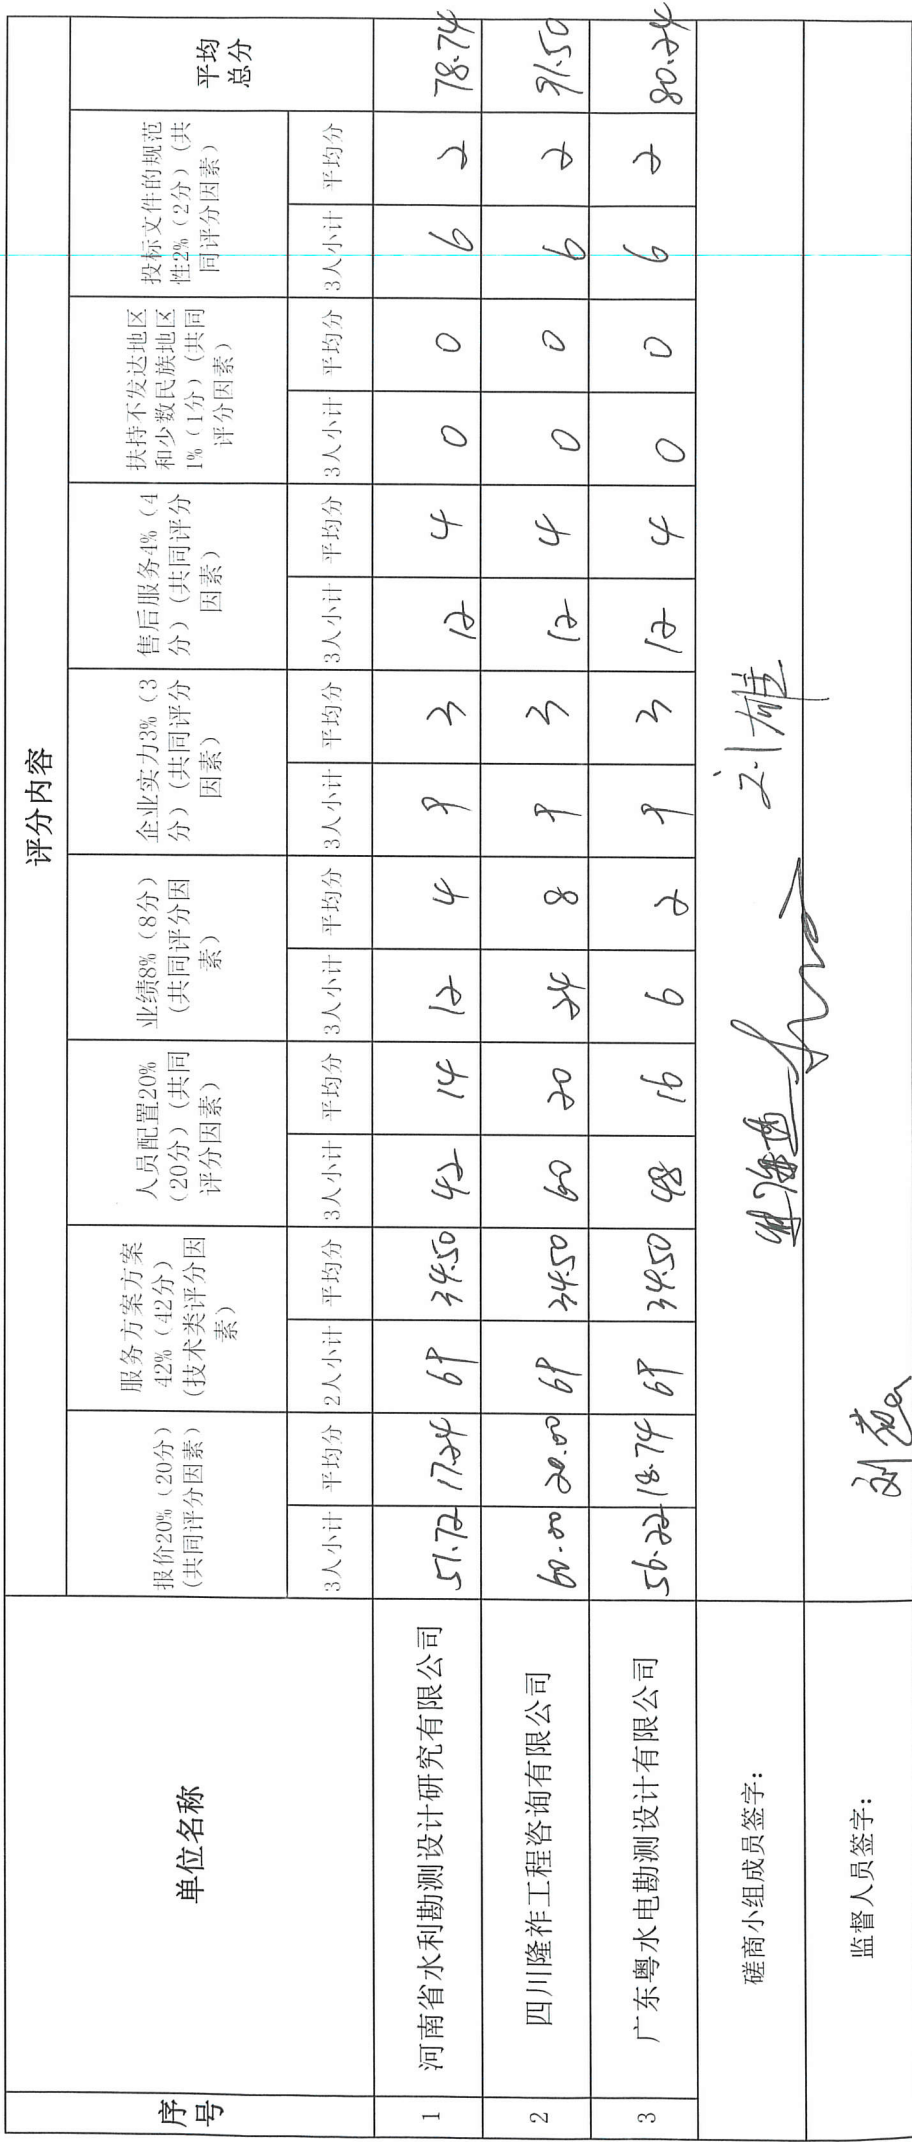 序号
单位名称
评分内容
报价20%（20分）
（共同评分因素）
服务方案方案
42%（42分）
（技术类评分因
素）
人员配置20%
（20分）（共同
评分因素）
业绩8%（8分）
（共同评分因
素）
企业实力3%（3
分）（共同评分
因素）
售后服务4%（4
分）（共同评分
因素）
扶持不发达地区
和少数民族地区
1%（1分）（共同
评分因素）
投标文件的规范
性2%（2分）（共
同评分因素）
平均
总分
3人小计 平均分 2人小计 平均分 3人小计 平均分 3人小计 平均分 3人小计 平均分 3人小计 平均分 3人小计 平均分 3人小计 平均分
1 河南省水利勘测设计研究有限公司 51.72 17.24 69 34.50 42 14 12 4 9 3 12 4 0 0 6 2 78.74
2 四川隆祚工程咨询有限公司 60.00 20.00 69 34.50 60 20 24 8 9 3 12 4 0 0 6 2 91.50
3 广东粤水电勘测设计有限公司 56.22 18.74 69 34.50 48 16 6 2 9 3 12 4 0 0 6 2 80.24
磋商小组成员签字：
监督人员签字：